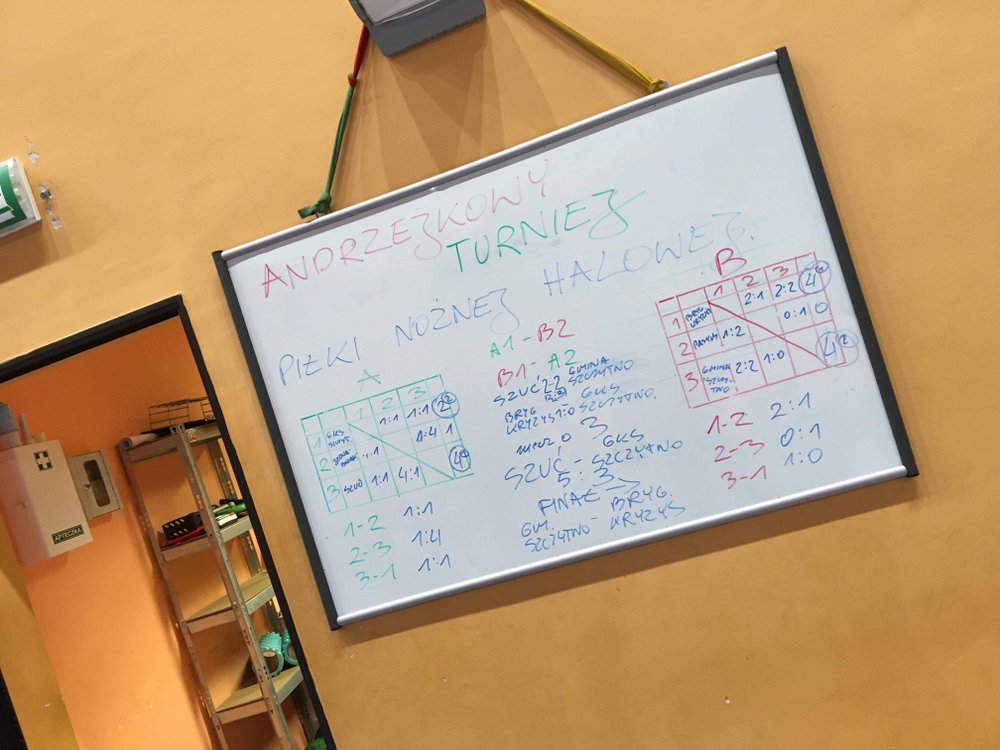 ANDRZEJKOWY
TURNIEJ
PIŁKI NOŻNEJ HALOWEJ.
A
1 2 3
1 GKS 1:1 1:1 2
2 1:1 1:4 1
3 SZUĆ 1:1 4:1 4
1-2 1:1
2-3 1:4
3-1 1:1
A1 - B2
B1 - A2
SZUĆ 2:2 GMINA
SZCZYTNO
BRYG GKS
KRYZYS 1:0 SZCZYTNO.
MECZ O 3
SZUĆ - GKS
SZCZYTNO
5:3
FINAŁ
GM. SZCZYTNO - BRYG. KRYZYS
B
1 2 3
1 BRYG. KRYZYS 2:1 2:2 4
2 1:2 0:1 0
3 GMINA SZCZYTNO 2:2 1:0 4
1-2 2:1
2-3 0:1
3-1 1:0
APTECZKA